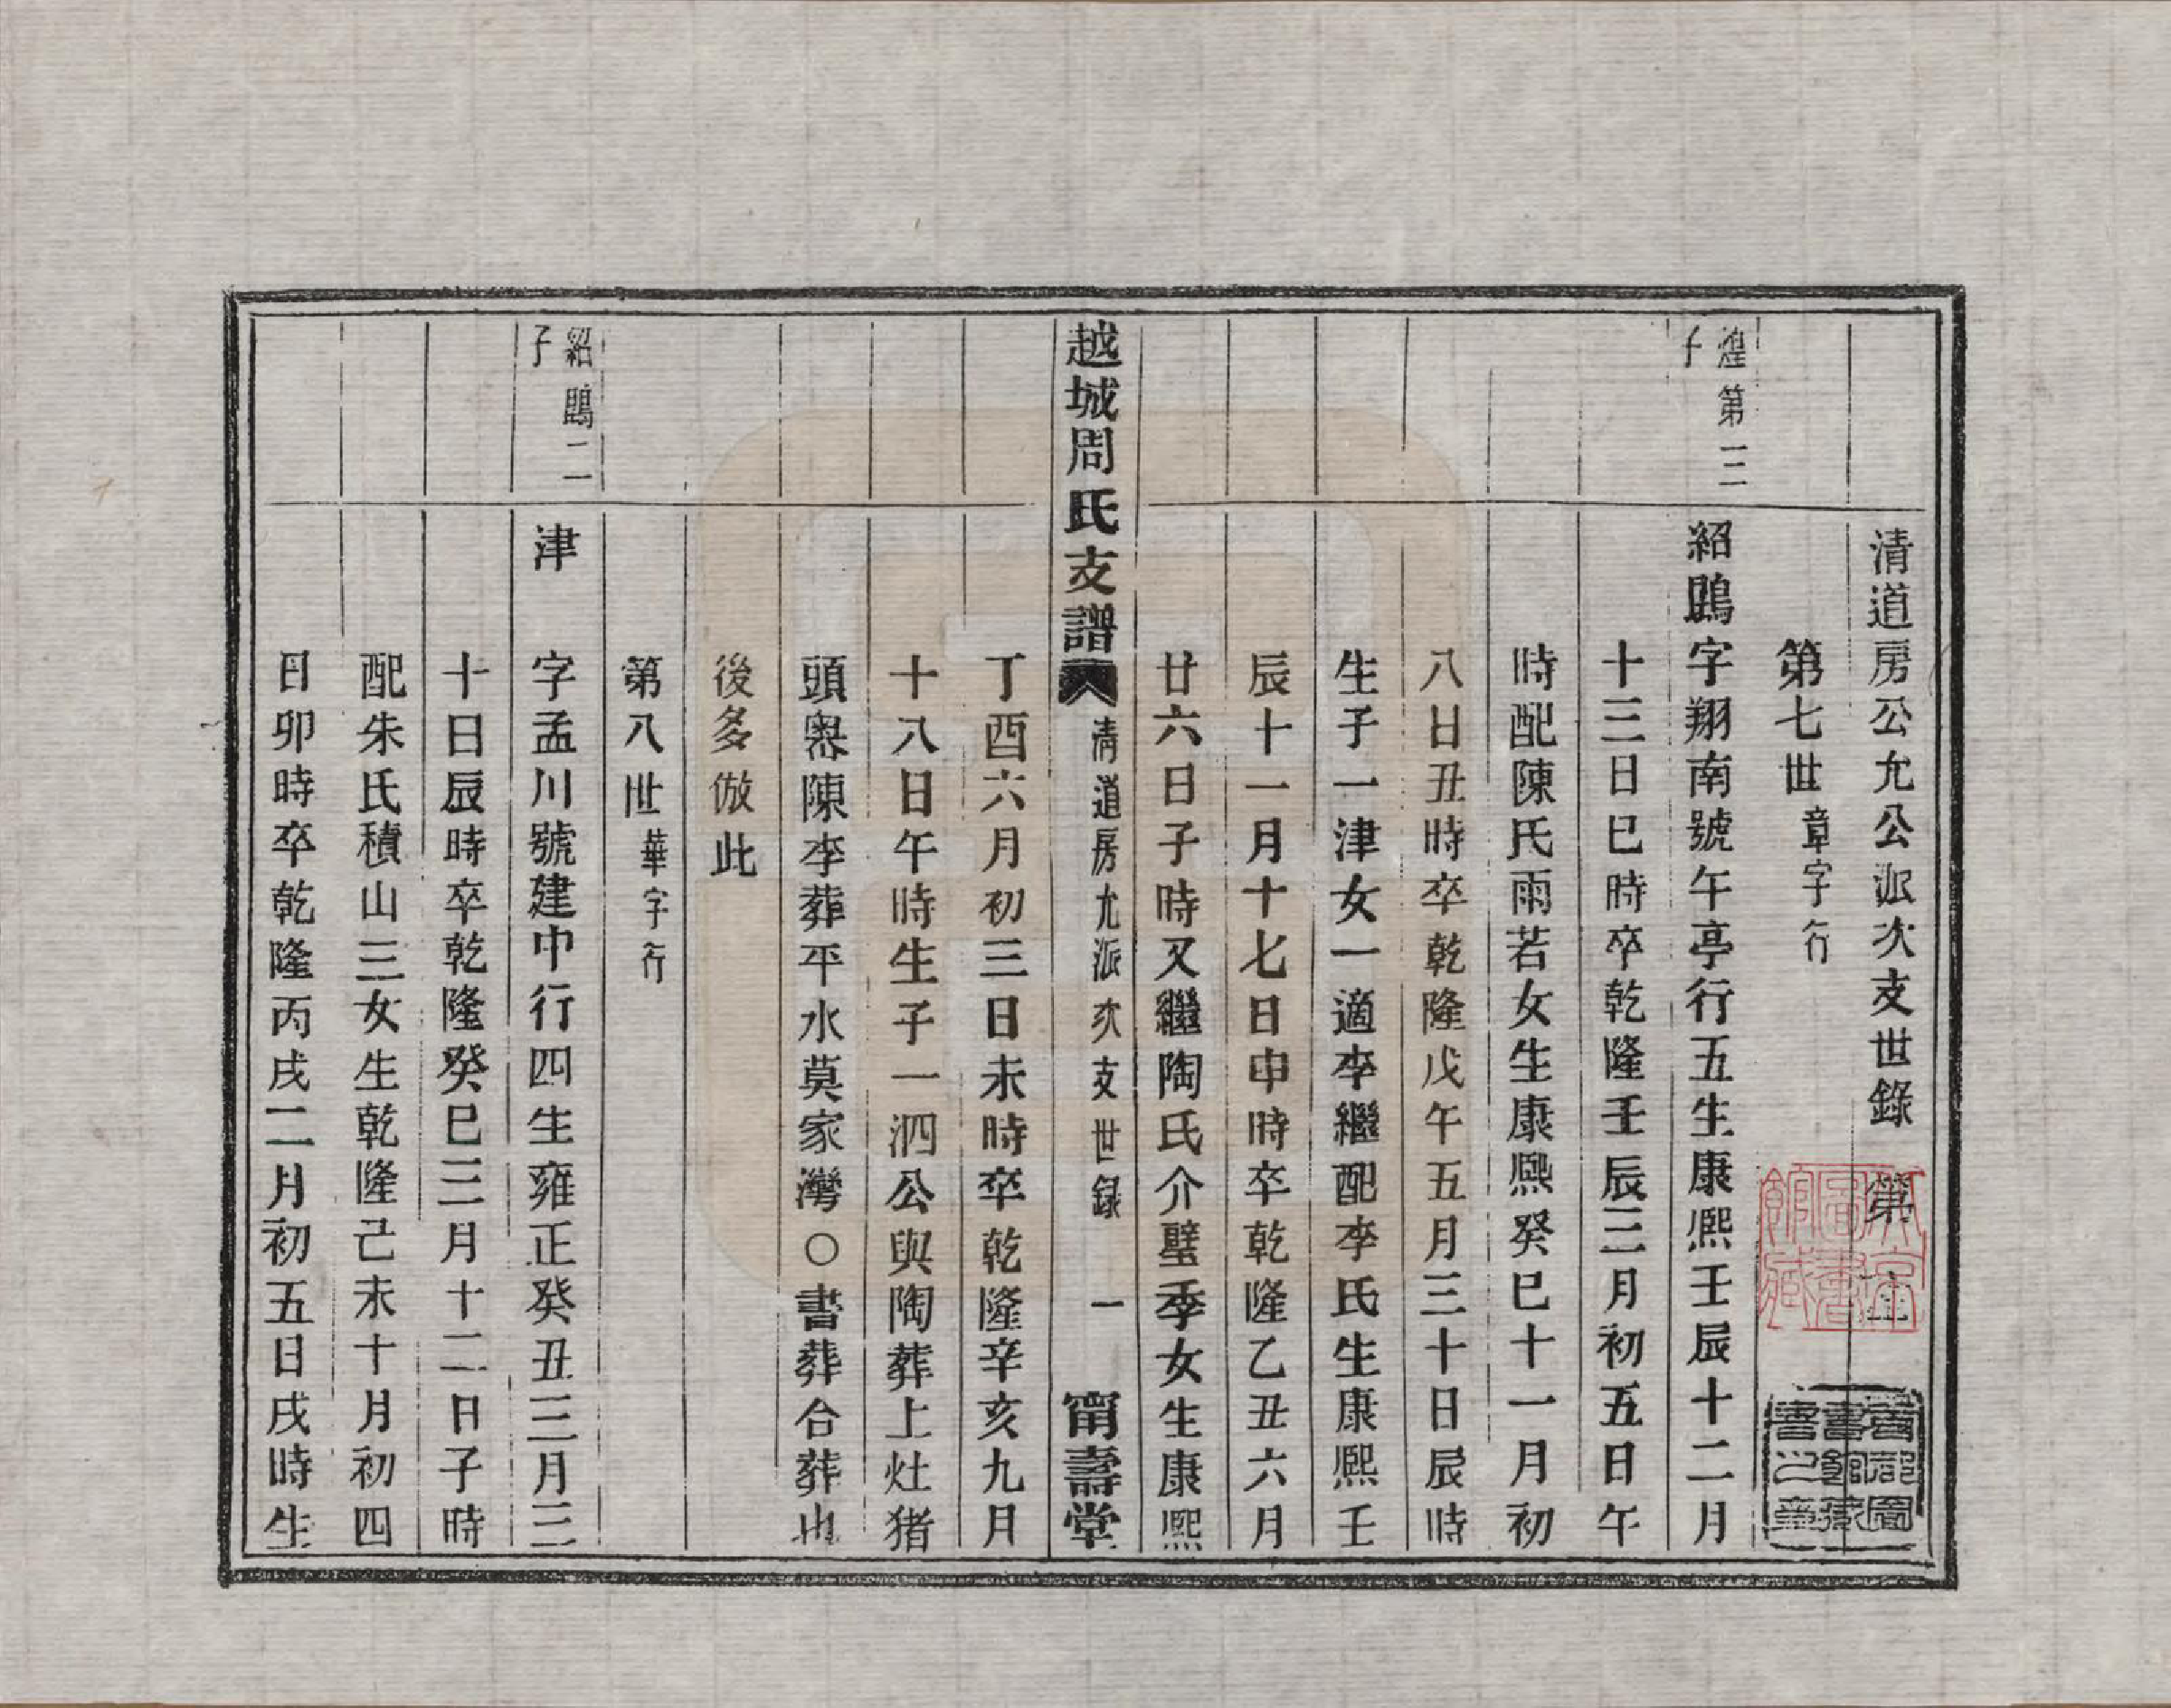 清道房公允公派次支世錄 第
第七世章字行
煌第三子
紹鵾字翔南號午亭行五生康熙壬辰十二月
十三日巳時卒乾隆壬辰三月初五日午
時配陳氏雨若女生康熙癸巳十一月初
八日丑時卒乾隆戊午五月三十日辰時
生子一津女一適李繼配李氏生康熙壬
辰十一月十七日申時卒乾隆乙丑六月
廿六日子時又繼陶氏介璧季女生康熙
越城周氏支譜 清道房允派次支世錄 一 甯壽堂
丁酉六月初三日未時卒乾隆辛亥九月
十八日午時生子一泗公與陶葬上灶猪
頭嶴陳李葬平水莫家灣○書葬合葬也
後多倣此
第八世華字行
紹鵾二子
津 字孟川號建中行四生雍正癸丑三月三
十日辰時卒乾隆癸巳三月十二日子時
配朱氏積山三女生乾隆己未十月初四
日卯時卒乾隆丙戌二月初五日戌時生